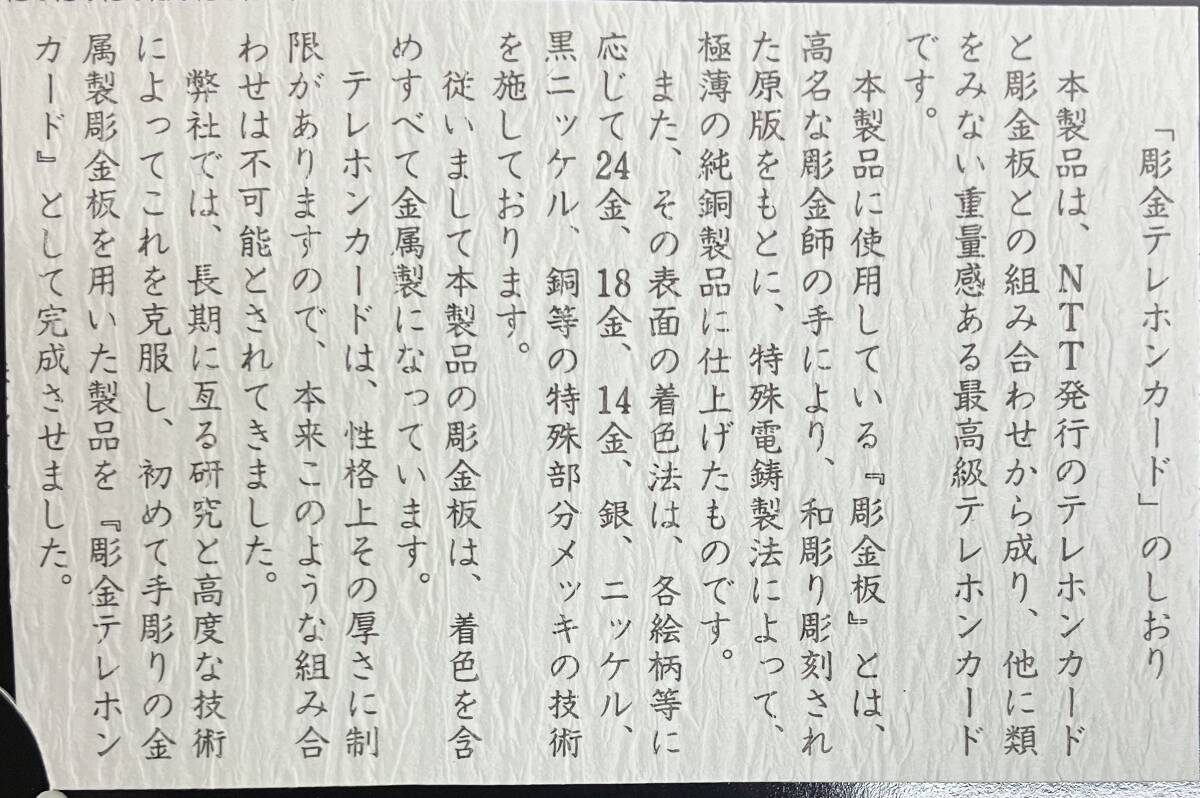 「彫金テレホンカード」のしおり
本製品は、NTT発行のテレホンカード
と彫金板との組み合わせから成り、他に類
をみない重量感ある最高級テレホンカード
です。
本製品に使用している『彫金板』とは、
高名な彫金師の手により、和彫り彫刻され
た原版をもとに、特殊電鋳製法によって、
極薄の純銅製品に仕上げたものです。
また、その表面の着色法は、各絵柄等に
応じて24金、18金、14金、銀、ニッケル、
黒ニッケル、銅等の特殊部分メッキの技術
を施しております。
従いまして本製品の彫金板は、着色を含
めすべて金属製になっています。
テレホンカードは、性格上その厚さに制
限がありますので、本来このような組み合
わせは不可能とされてきました。
弊社では、長期に亙る研究と高度な技術
によってこれを克服し、初めて手彫りの金
属製彫金板を用いた製品を『彫金テレホン
カード』として完成させました。